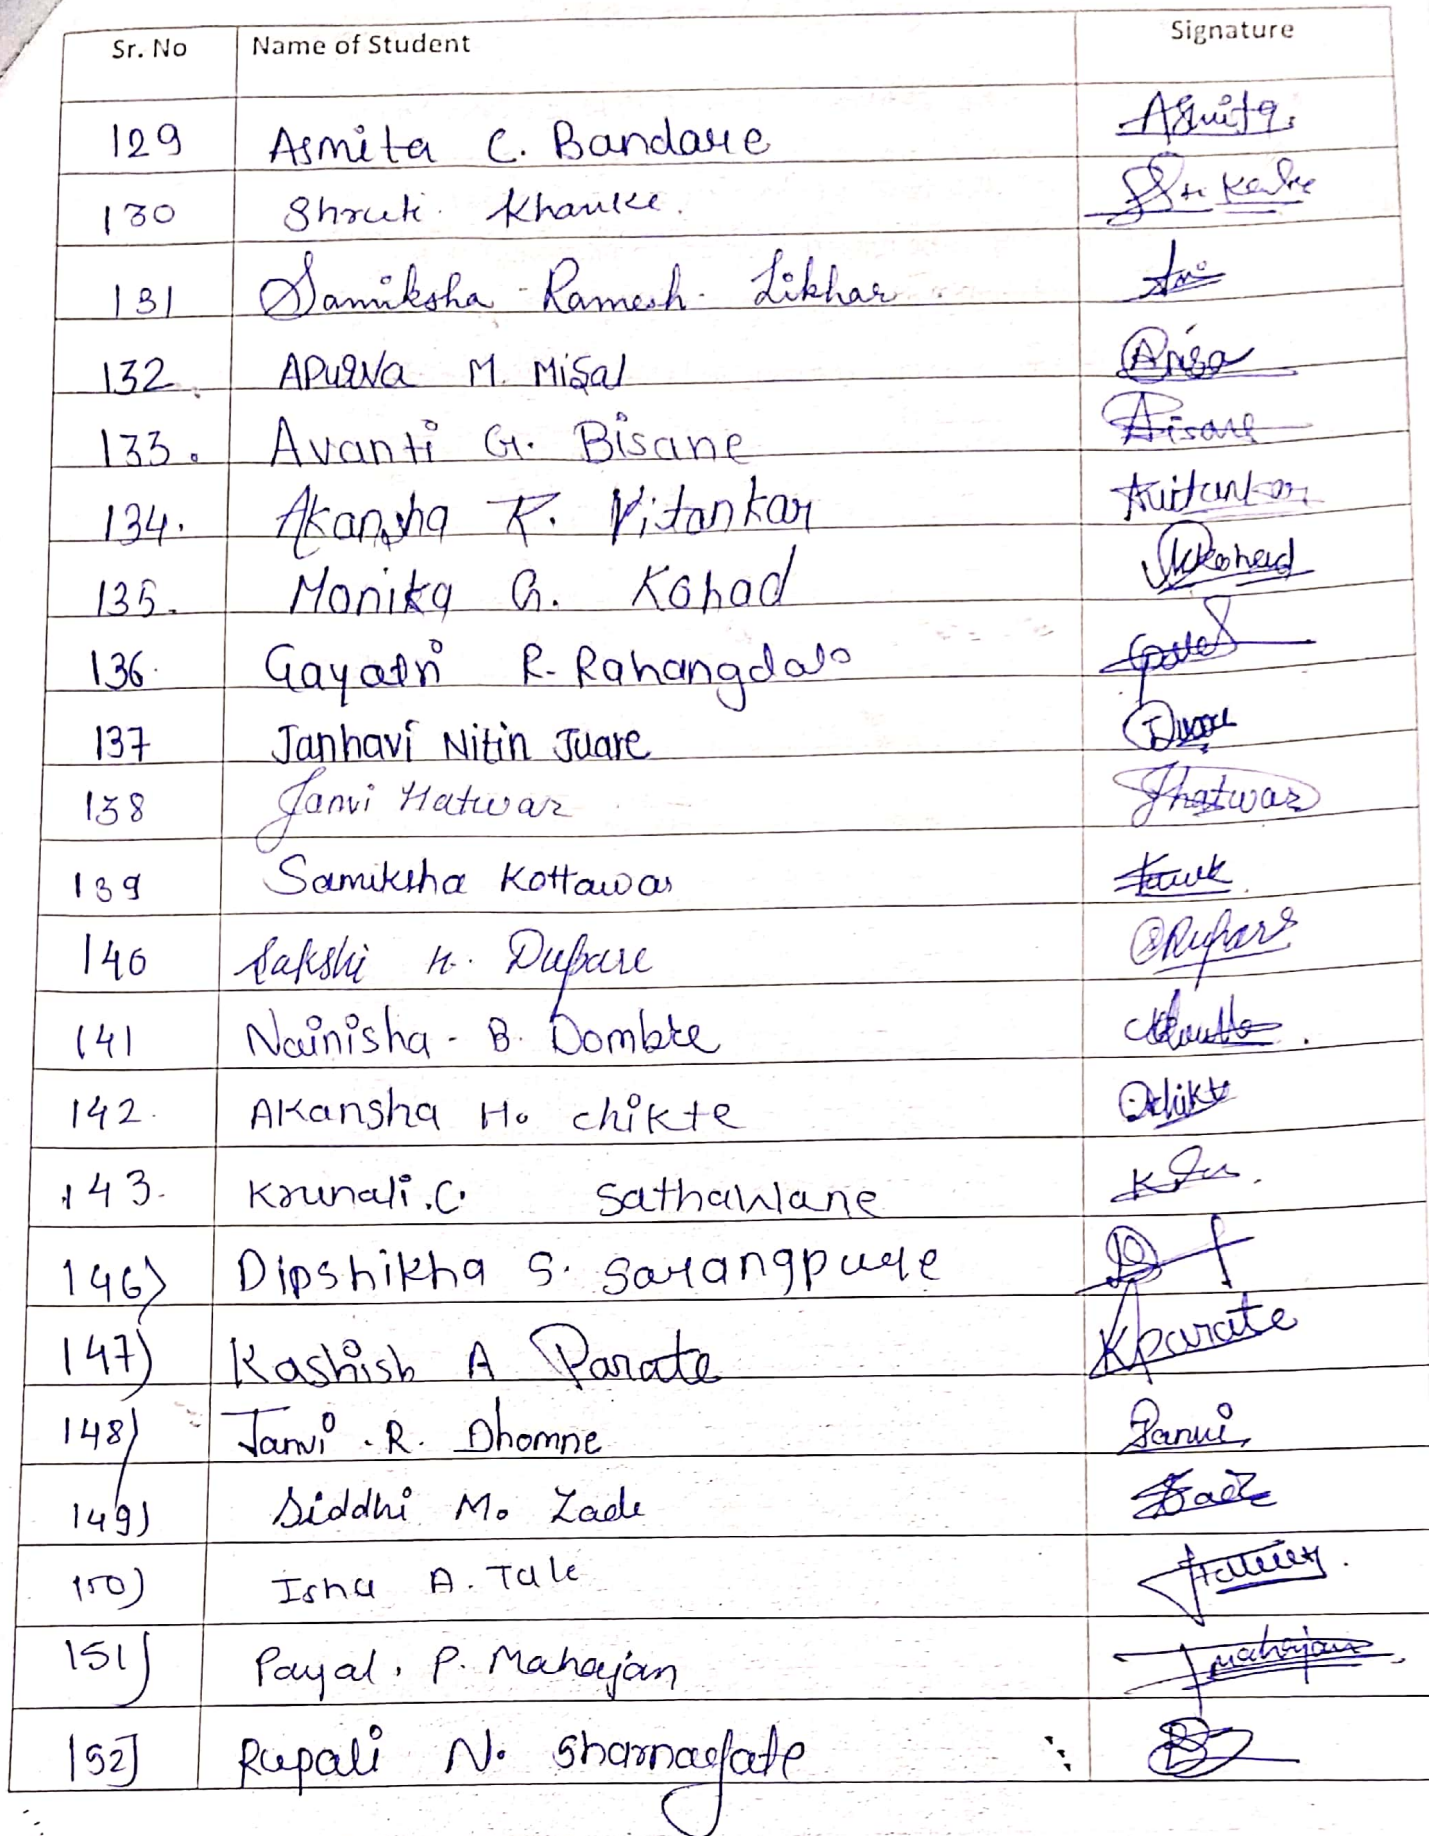 Sr. No Name of Student Signature
129 Asmita C. Bandare Asmita
130 Shruti Khauke.
131 Samiksha Ramesh Likhar
132. Apurva M. Misal
133. Avanti G. Bisane
134. Akansha K. Vitankar
135. Monika G. Kohad
136. Gayatri R. Rahangdale
137 Janhavi Nitin Juare
138 Janvi Hatwar Jhatwar
139 Samiksha Kottawar
140 Sakshi H. Dupare
141 Nainisha - B. Dombre
142. Akansha H. Chikte
143. Krunali .C. Sathawane
146) Dipshikha S. Sarangpure
147) Kashish A Parate Kparate
148) Janvi . R. Dhomne Janvi
149) Siddhi M. Zade
150) Isha A. Tale
151) Payal . P. Mahajan
152) Rupali N. Sharnagate